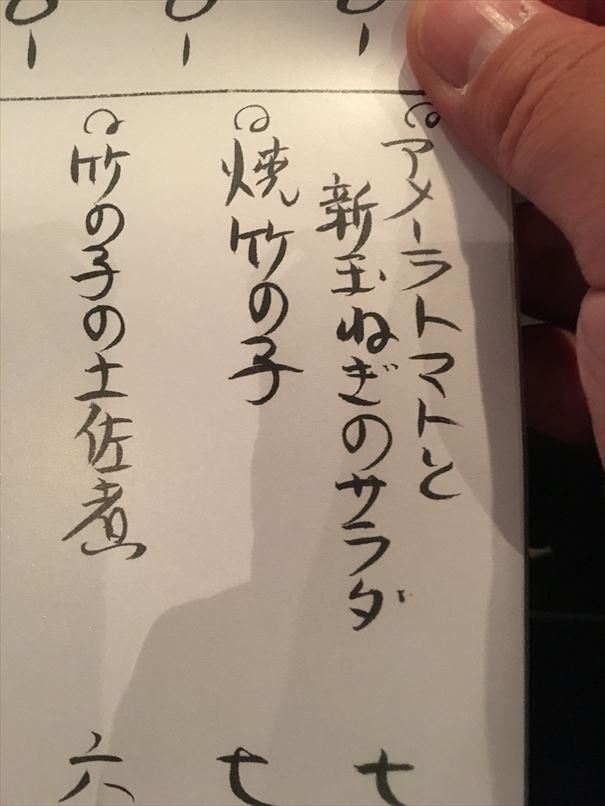 アメーラトマトと
新玉ねぎのサラダ
七
焼竹の子
七
竹の子の土佐煮
六